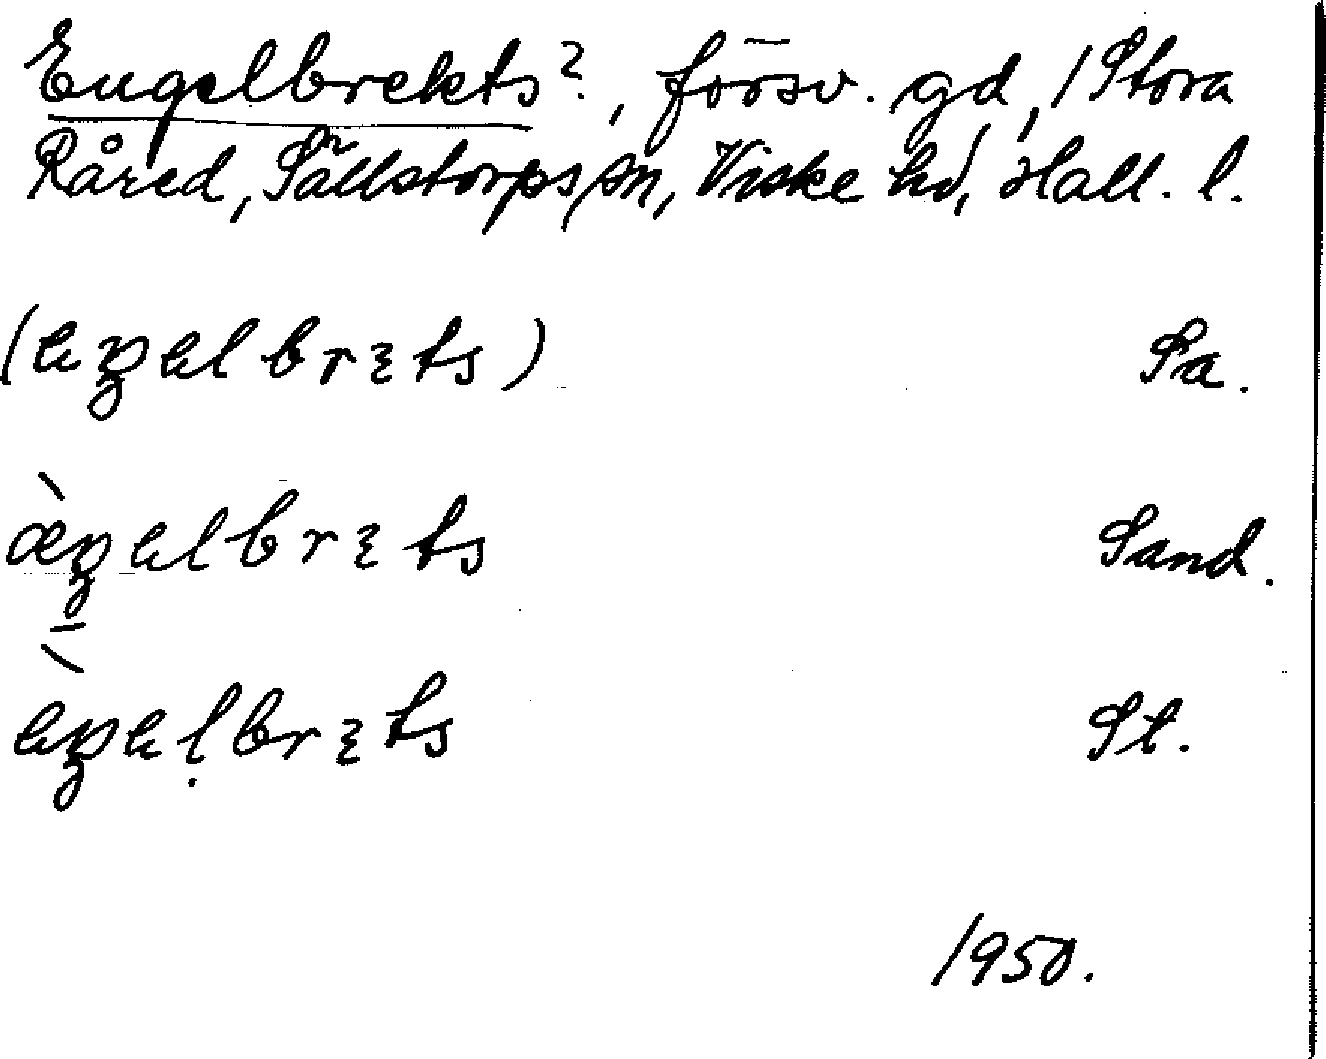 Engelbrekts?, försv. gd, Stora
Råred, Sällstorps sn, Viske hd, Hall. l.
(eŋelbrɛts) Sa.
æ̀ŋelbrɛts Sand.
èŋelbrɛts St.
1950.